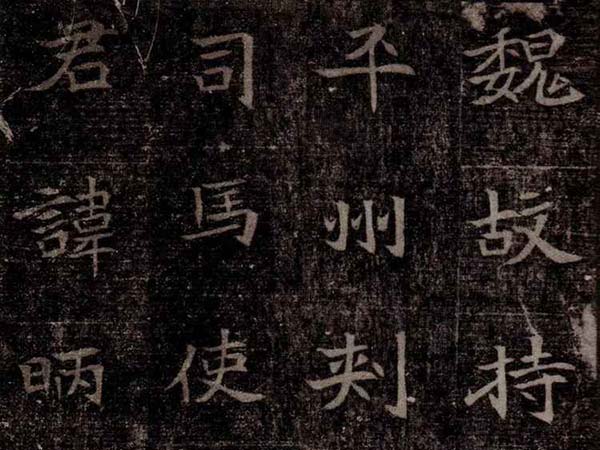 魏故持
平州刾
司馬使
君諱昞